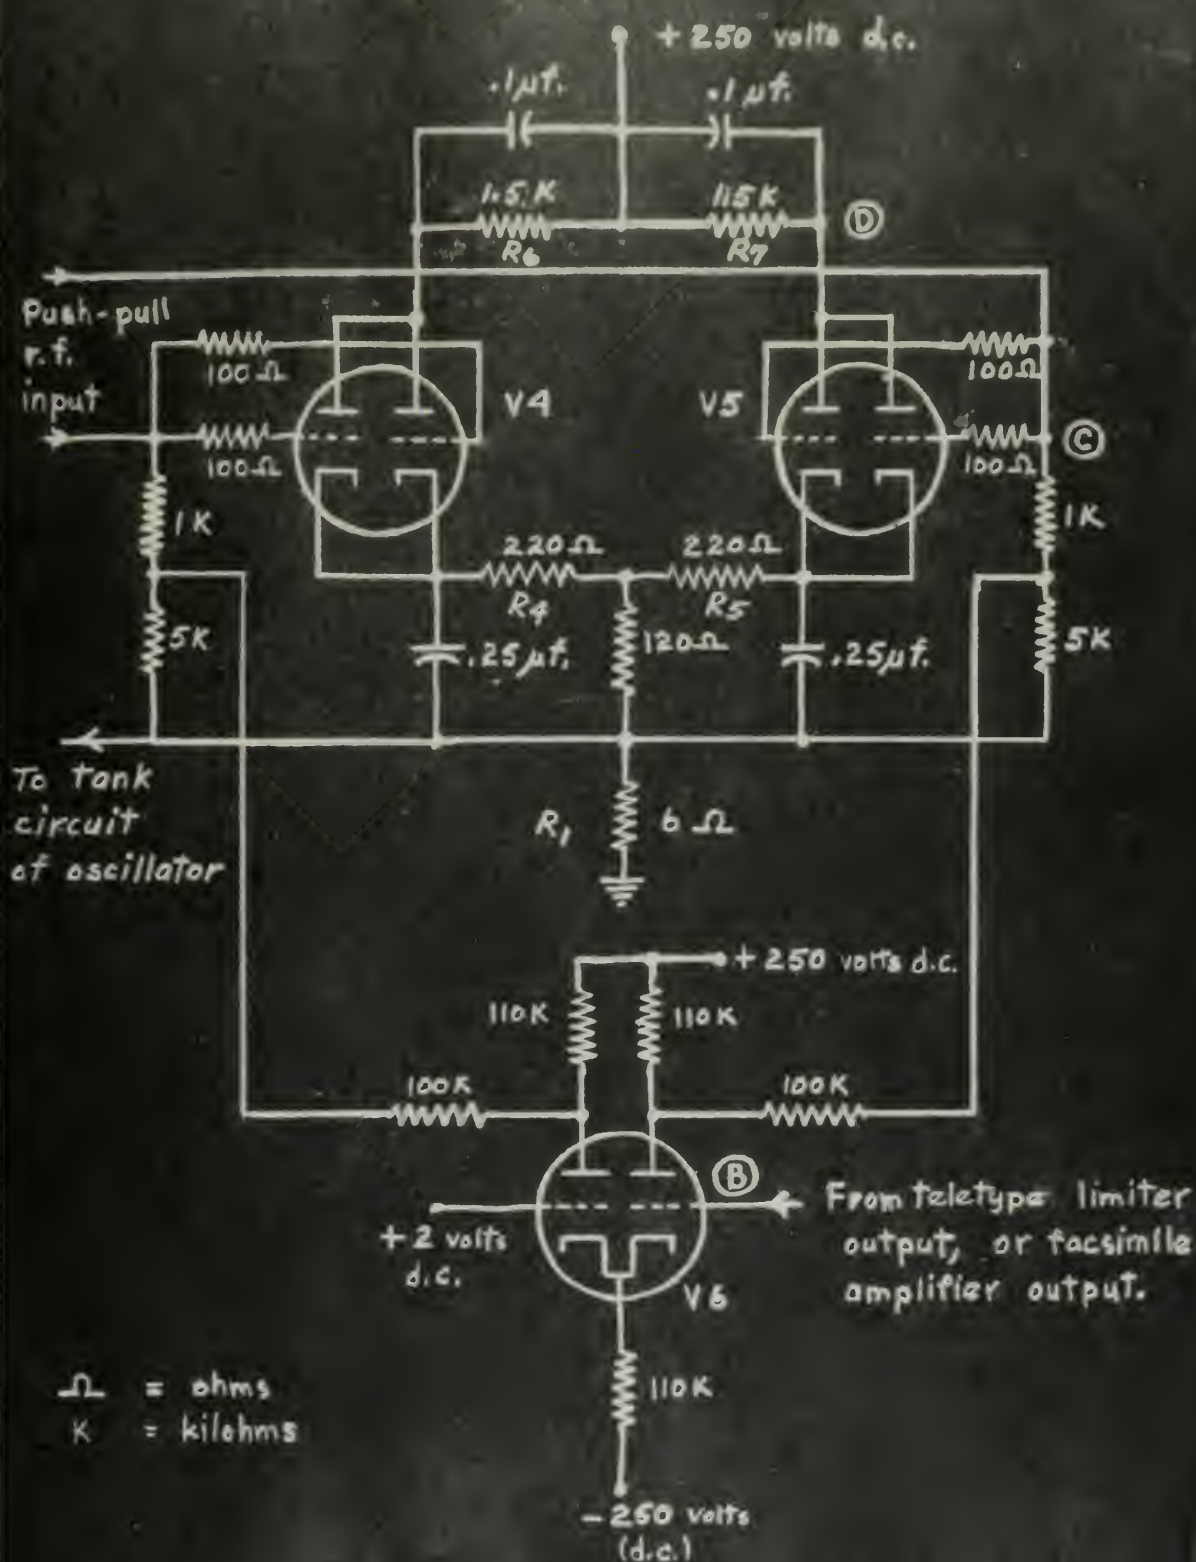 + 250 volts d.c.
.1 µf.
.1 µf.
1.5 K
115K
R6
R7
D
Push-pull
r.f.
input
100 Ω
100 Ω
100Ω
100Ω
V4
V5
C
1K
1K
220Ω
220Ω
R4
R5
5K
.25µf.
120Ω
.25µf.
5K
To tank
circuit
of oscillator
R1
6 Ω
+ 250 volts d.c.
110K
110K
100K
100K
B
+2 volts
d.c.
From teletype limiter
output, or facsimile
amplifier output.
V6
Ω = ohms
K = kilohms
110K
- 250 volts
(d.c.)